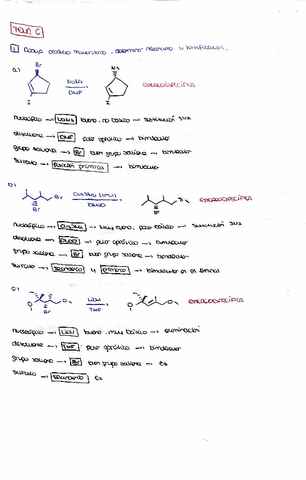 TEMA 6
1. Dibuja producto mayoritario, determinar mecanismo y justificación.
a)
Br
NaN₃
DMF
N₃
I
I
ESTEREOESPECÍFICA
nucleófilo → NaN₃ bueno, no básico → sustitución SN2
disolvente → DMF polar aprótico → bimolecular
grupo saliente → Br buen grupo saliente → bimolecular
sustrato → → bimolecular
b)
Br
Br
DMSO
Br
ESTEREOESPECÍFICA
nucleófilo → → muy bueno, poco básico → sustitución SN2
disolvente → DMSO → polar aprótico → bimolecular
grupo saliente → Br buen grupo saliente → bimolecular
sustrato → secundario y primario → bimolecular en el
c)
Br
THF
ESTEREOESPECÍFICA
nucleófilo → bueno, muy básico → eliminación
disolvente → THF polar aprótico → bimolecular
grupo saliente → Br buen grupo saliente → E2
sustrato → secundario E2